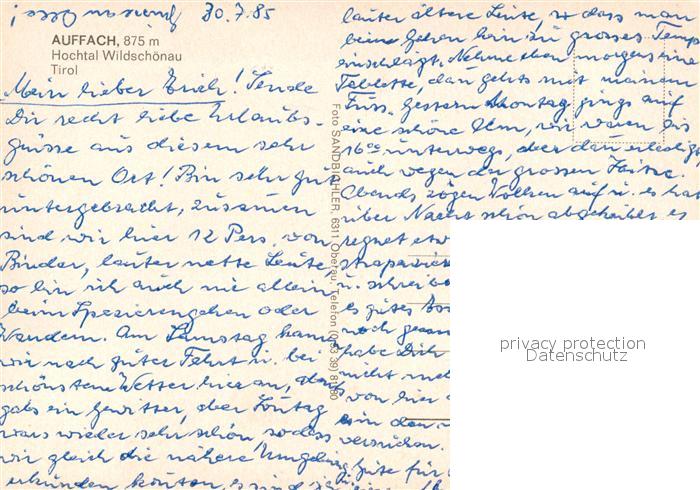 30.7.85
AUFFACH, 875 m
Hochtal Wildschönau
Tirol
Mein lieber Erich! Sende
Dir recht liebe Urlaubs-
grüsse aus diesem sehr
schönen Ort! Bin sehr gut
untergebracht, zusammen
sind wir hier 12 Pers. von
Binder, lauter nette Leute
so bin ich auch nie allein
beim Spazierengehen oder
Wandern. Am Samstag kamen
wir nach guter Fahrt u. bei
schönstem Wetter hier an, dann
gabs ein Gewitter, aber Sonntag
wars wieder sehr schön, sodass
wir gleich die nähere Umgebung
erkunden konnten, es sind
Foto SANDBICHLER, 6311 Oberau, Telefon (0 53 39) 8
lauter ältere Leute, dass man
beim Gehen kein zu grosses Temp
einschlagt. Nehme eben morgens eine
Tablette, dan gehts mit meinem
Fuss. Gestern Montag gings auf
eine schöne Alm, wir waren bis
16 00 unterwegs, aber dan erledigt
auch wegen der grossen Hitze.
Abends zogen Wolken auf u. es hat
über Nacht schön abgekühlt es
regnet etw
strapazier
u. schreibe
es gutes
noch
habe Dich
nicht
von hier
ein
versuchen.
Gute für
privacy protection
Datenschutz